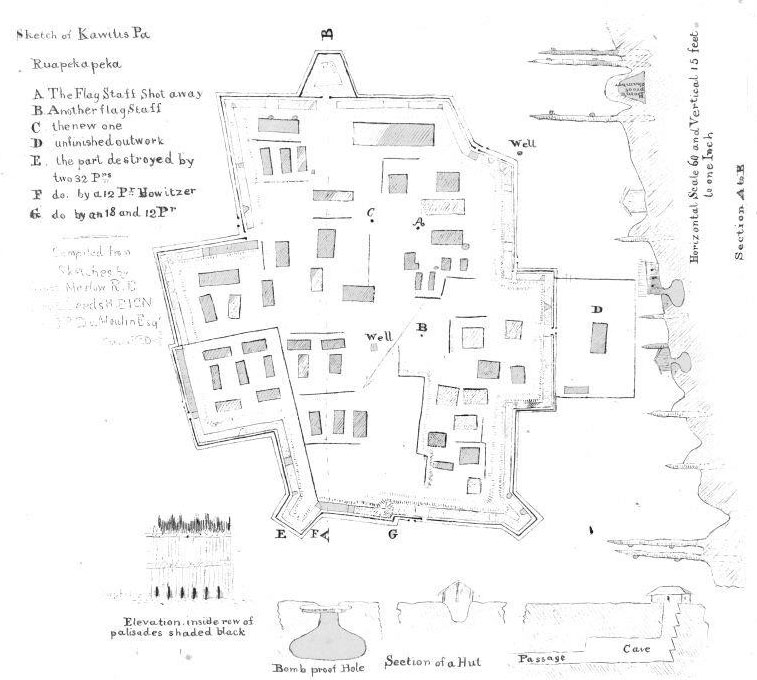 Sketch of Kawitis Pa
Ruapekapeka
A The Flag Staff Shot away
B Another flag Staff
C the new one
D unfinished outwork
E. the part destroyed by
two 32 Prs
F do. by a 12 Pr Howitzer
G do by an 18 and 12 Pr
Compiled from
Sketches by
Marlow R.E
Leeds H.E I C N
Du Moulin Esqr
B
Well
C
A
Well
B
D
E
F
A
G
Horizontal Scale 60 and Vertical 15 feet
to one Inch
Section A to B
Bomb
proof
Chamber
Elevation. inside row of
palisades shaded black
Bomb proof Hole
Section of a Hut
Passage
Cave